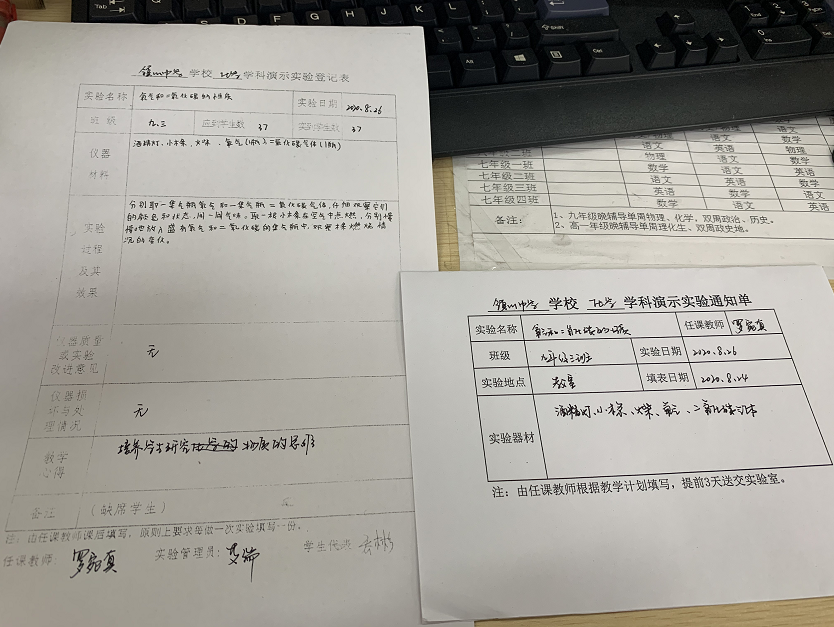 学校 化学 学科演示实验登记表
实验名称 氧气和二氧化碳的性质 实验日期 2020.8.26
班级 九.三 应到学生数 37 实到学生数 37
仪器
材料
酒精灯、小木条、火柴、氧气(1瓶)二氧化碳气体(1瓶)
分别取一集气瓶氧气和一集气瓶二氧化碳气体,仔细观察它们
的颜色和状态,闻一闻气味。取一根小木条在空气中点燃,分别慢
慢地放入盛有氧气和二氧化碳的集气瓶中,观察木条燃烧情
况的变化。
实验
过程
及其
效果
仪器质量
或实验
改进意见
无
仪器损
坏与处
理情况
无
教学
心得
培养学生研究 物质的
备注 (缺席学生) 无
注:由任课教师课后填写,原则上要求每做一次实验填写一份。
任课教师: 实验管理员: 学生代表:
Tab
Alt
Ctrl
Shift
End
Ins
Del
语文 数学 物理
语文 英语
七年级一班 物理 数学
七年级二班 语文 英语
七年级三班 英语 数学
七年级四班 数学 语文 英语
备注: 1、九年级晚辅导单周物理、化学,双周政治、历史。
2、高一年级晚辅导单周理化生、双周政史地。
学校 化学 学科演示实验通知单
实验名称 氧气和二氧化碳的性质 任课教师
班级 九年级三班 实验日期 2020.8.26
实验地点 教室 填表日期 2020.8.24
实验器材 酒精灯、小木条、火柴、氧气、二氧化碳气体
注:由任课教师根据教学计划填写,提前3天送交实验室。